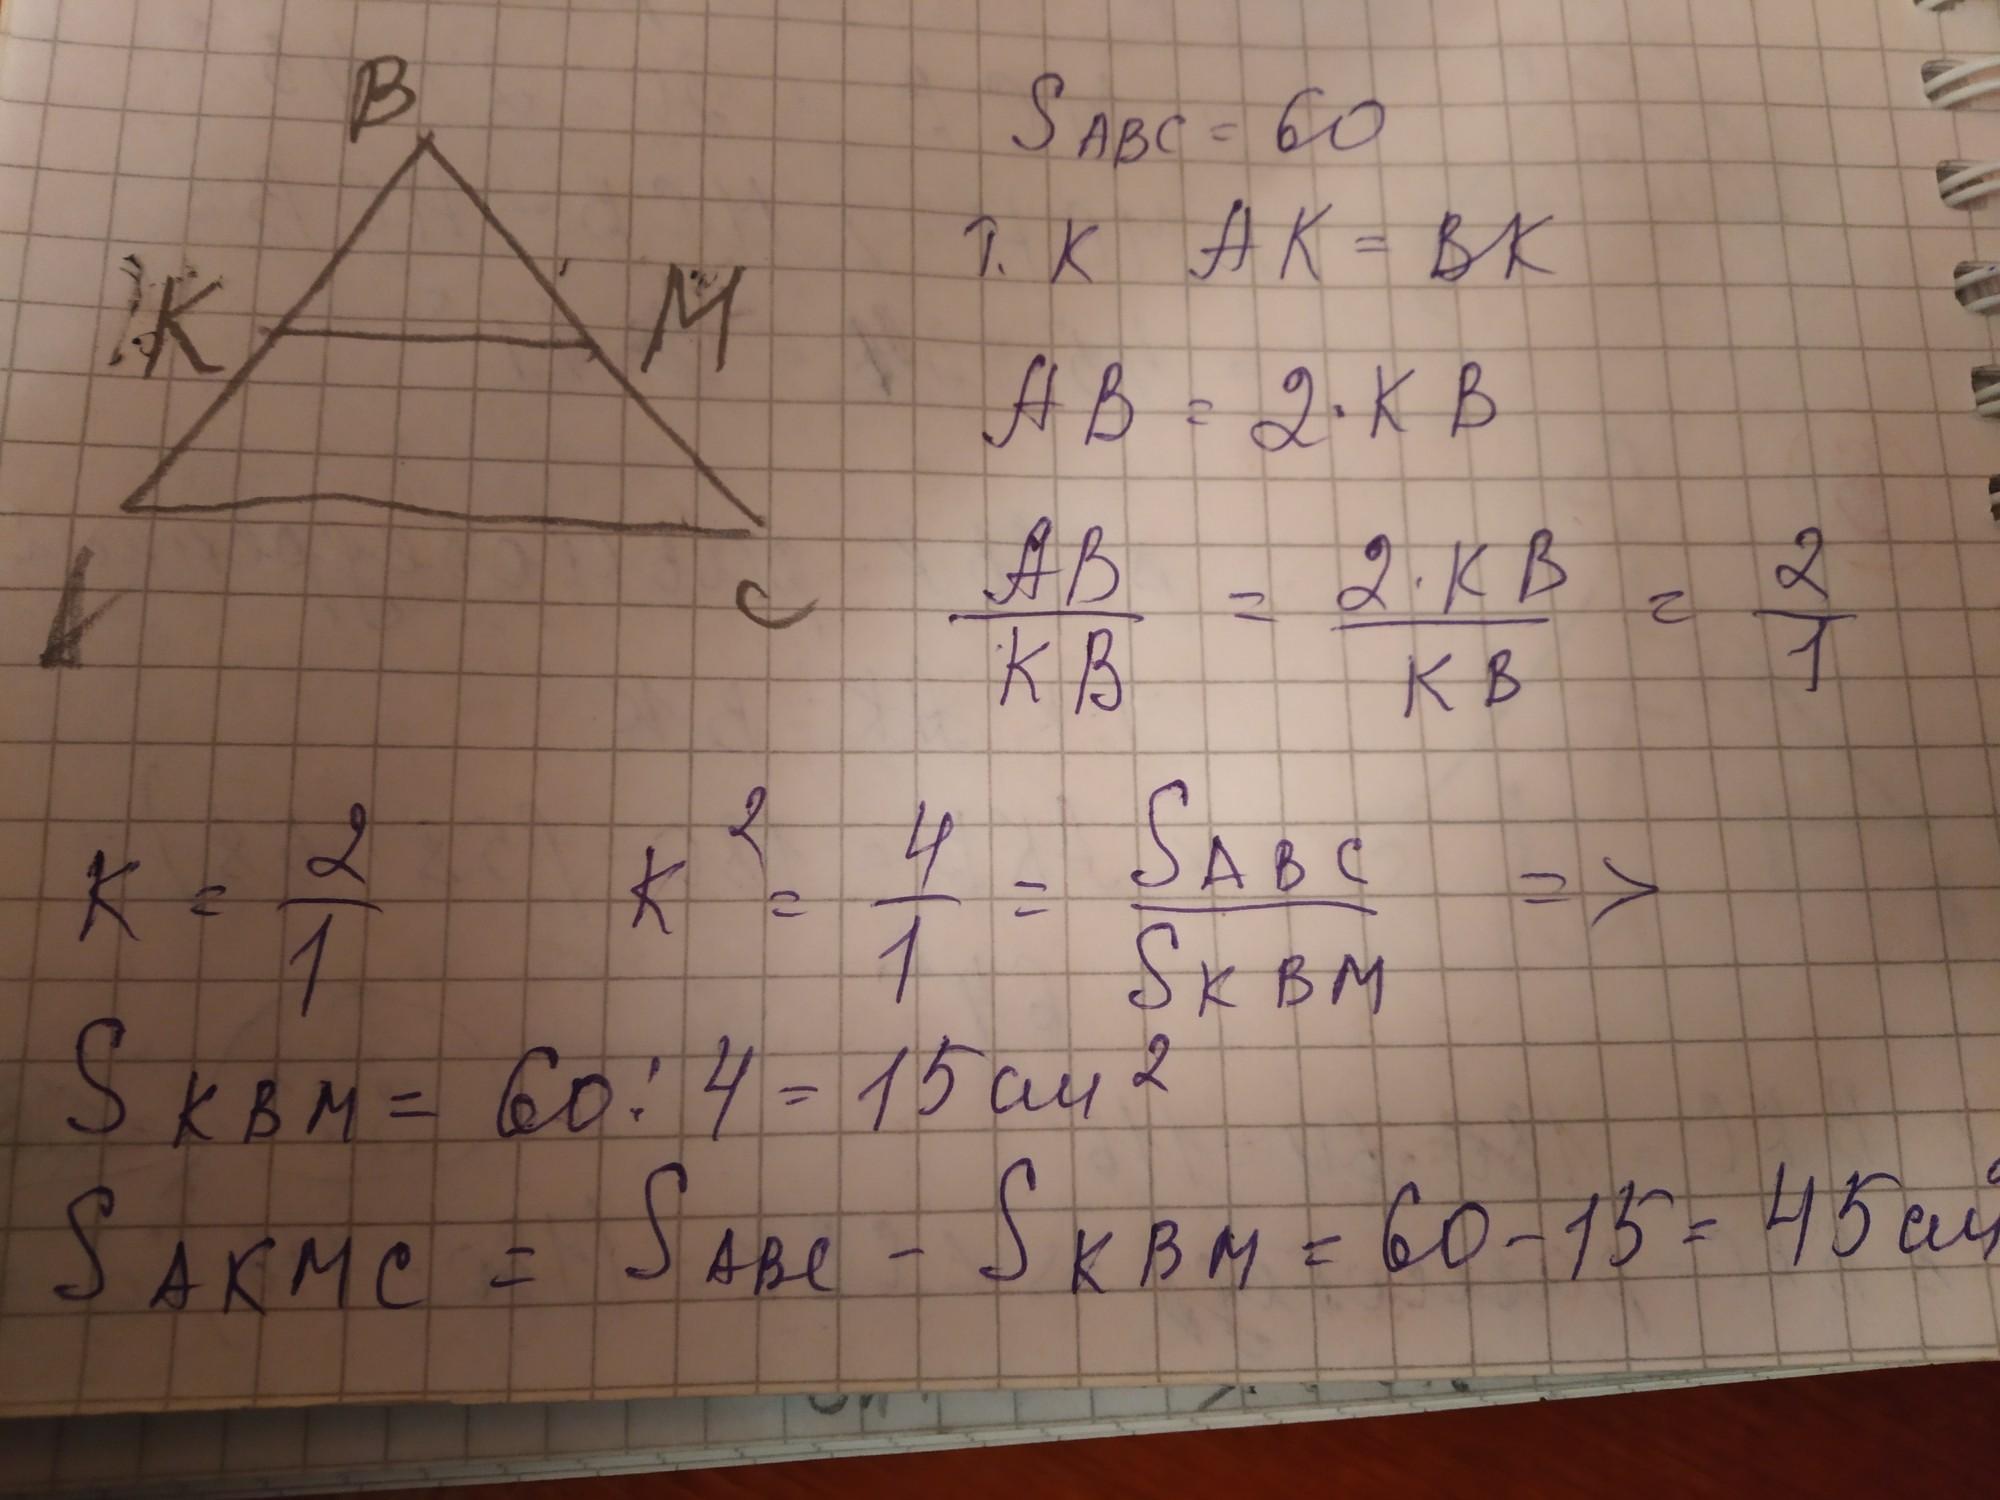 B
K
M
C
S ABC = 60
Т. К AK = BK
AB = 2·KB
AB/KB = 2·KB/KB = 2/1
K = 2/1 K² = 4/1 = S ABC/S KBM =>
S KBM = 60:4 = 15 см²
S AKMC = S ABC - S KBM = 60-15 = 45 см²